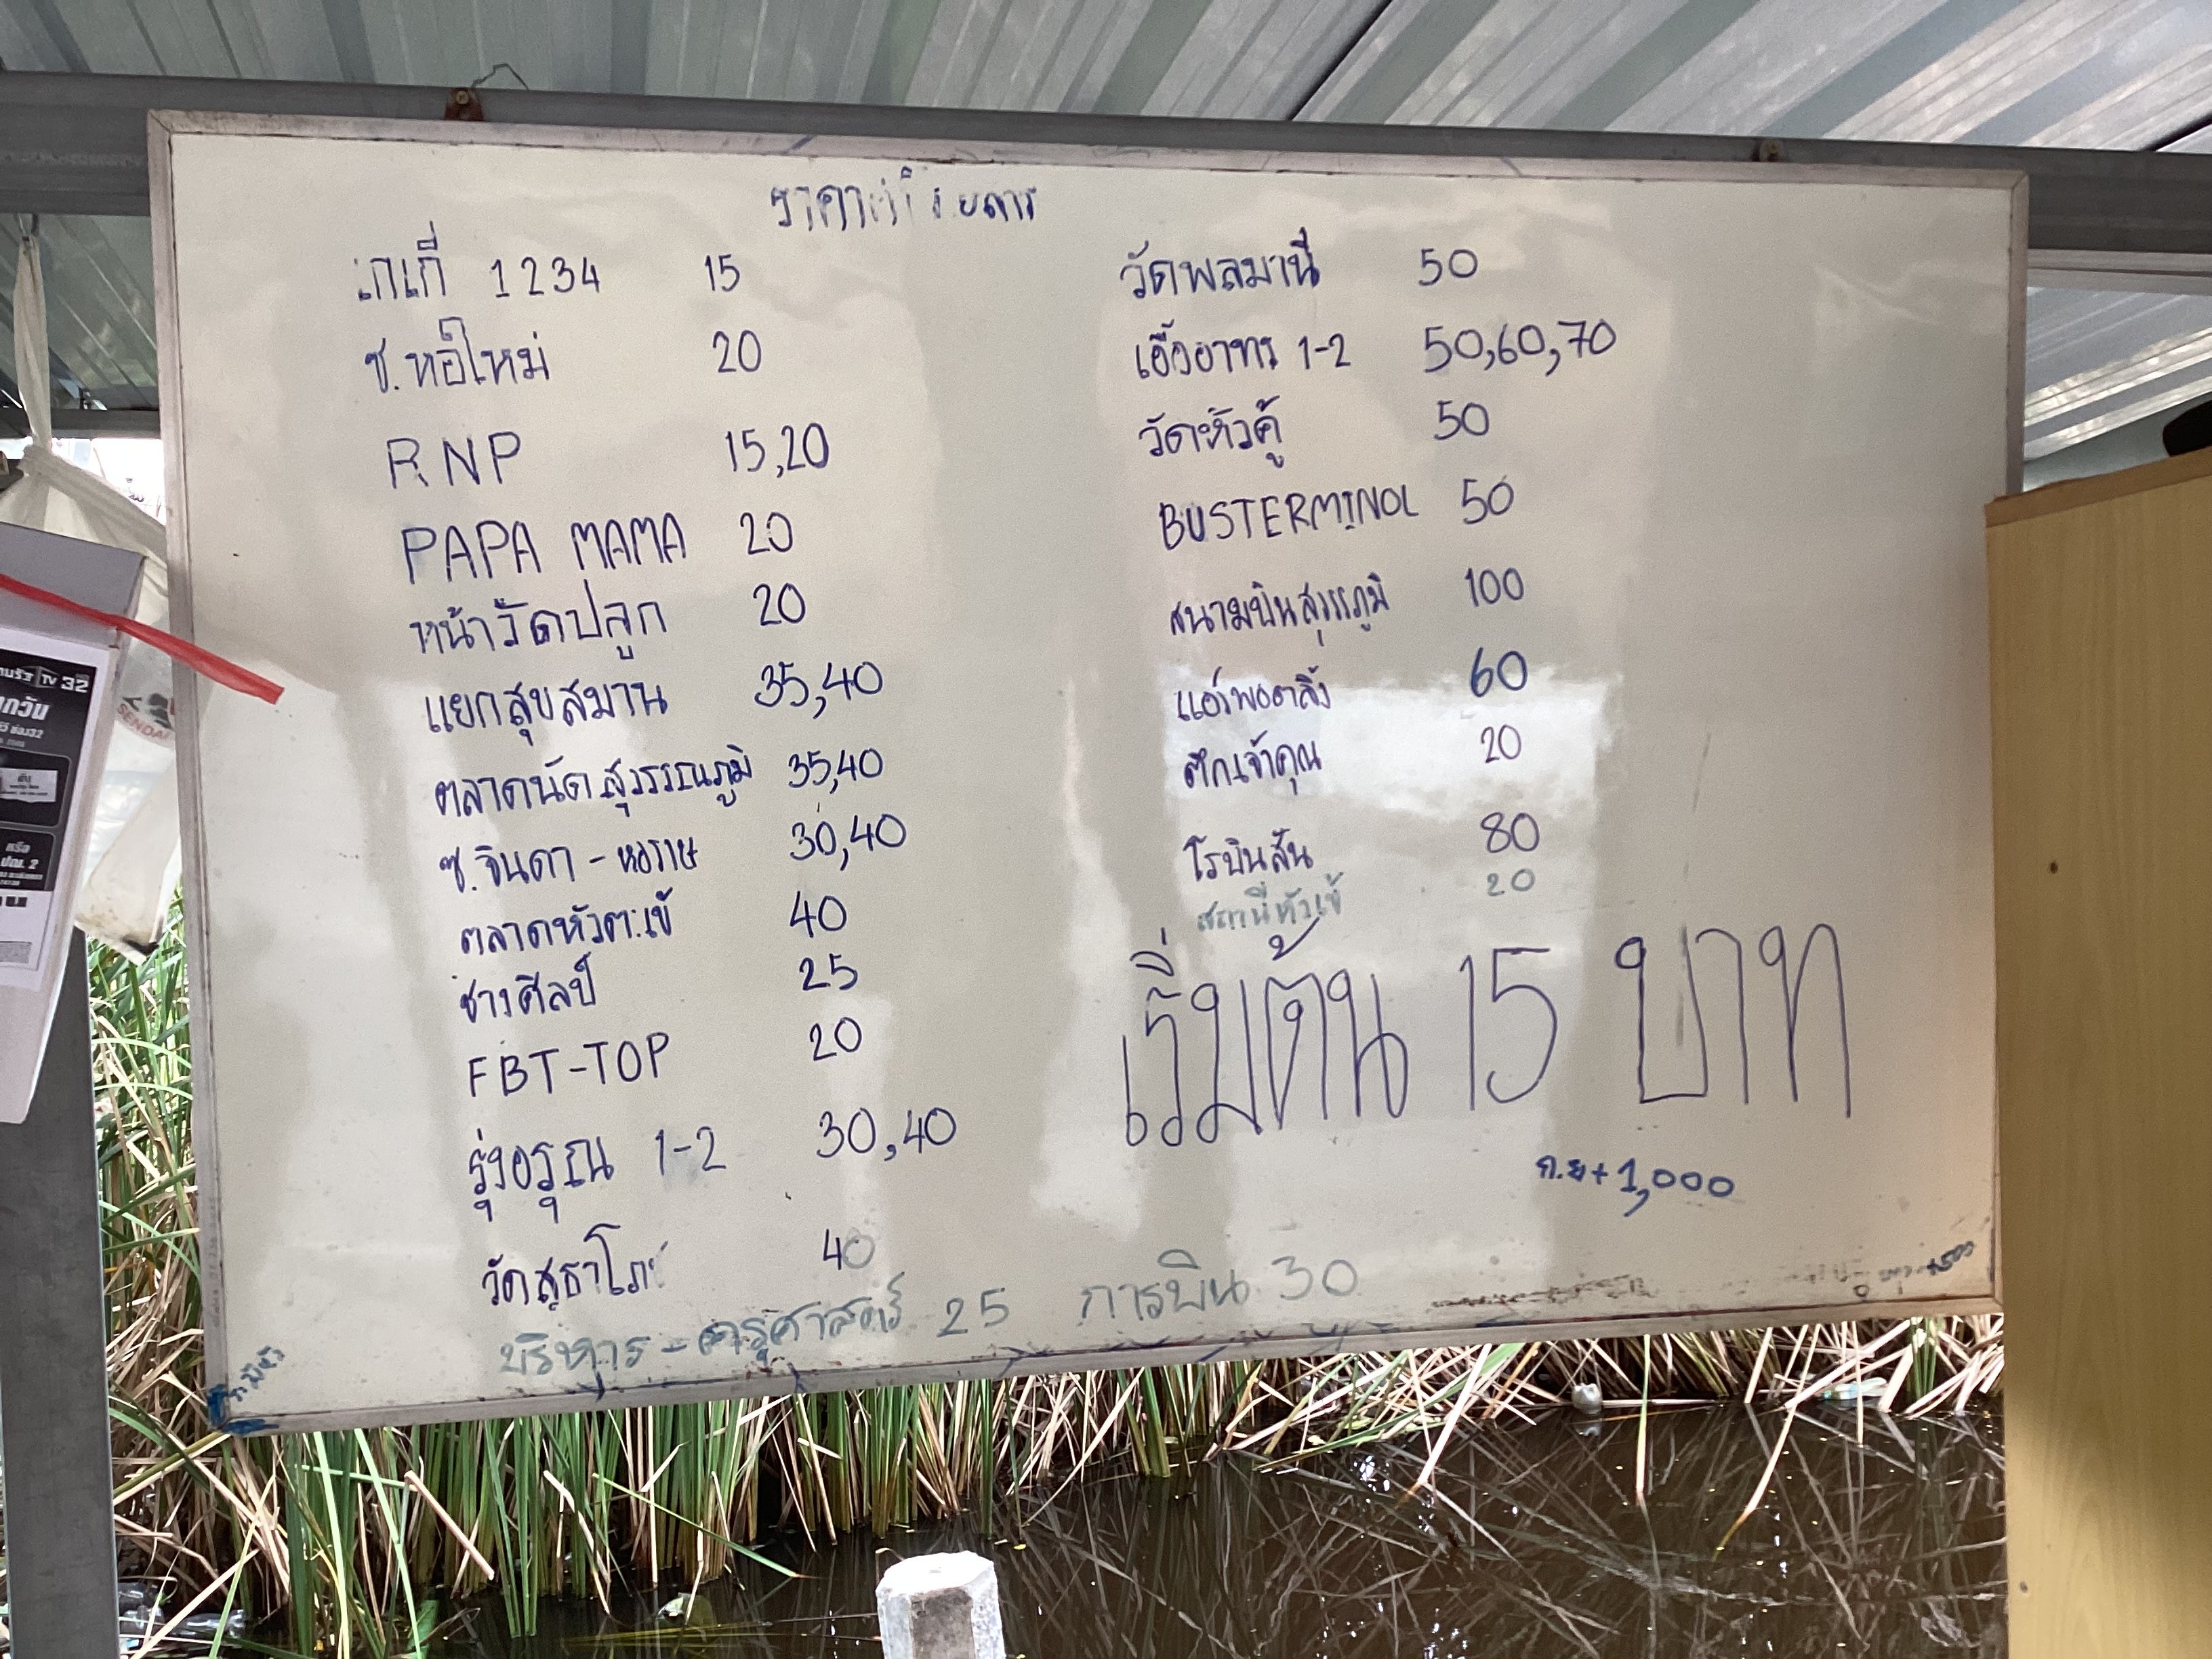 เกกี่ 1 2 3 4 15
ซ.หอใหม่ 20
RNP 15,20
PAPA MAMA 20
หน้าวัดปลูก 20
แยกสุขสมาน 35,40
ตลาดนัดสุวรรณภูมิ 35,40
ซ.จินดา - หอราษ 30,40
ตลาดหัวตะเข้ 40
ช่างศิลป์ 25
FBT-TOP 20
รุ่งอรุณ 1-2 30,40
วัดสุธาโภ 40
บริหาร - ครุศาสตร์ 25 การบิน 30
วัดพลมานี 50
เอื้ออาทร 1-2 50,60,70
วัดหัวคู้ 50
BUSTERMINOL 50
สนามบินสุวรรภูมิ 100
แอร์พอตลิ้ง 60
ตึกเจ้าคุณ 20
โรบินสัน 80
สถานีหัวเข้ 20
เริ่มต้น 15 บาท
ก.ย + 1,000
TV 32
SENDAI
หรือ